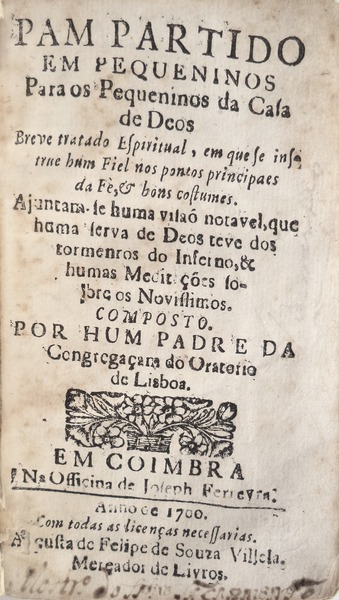 PAM PARTIDO
EM PEQUENINOS
Para os Pequeninos da Casa
de Deos
Breve tratado Espiritual, em que se ins-
true hum Fiel nos pontos principaes
da Fè, & bons costumes.
Ajuntam-se huma visaõ notavel, que
huma serva de Deos teve dos
tormenros do Inferno, &
humas Medit ções so-
bre os Novissimos.
COMPOSTO.
POR HUM PADRE DA
Congregaçam do Oratorio
de Lisboa.
EM COIMBRA
Na Officina de Joseph Ferreyra.
Anno de 1700.
Com todas as licenças necessarias.
A custa de Felipe de Souza Villela.
Mercador de Livros.